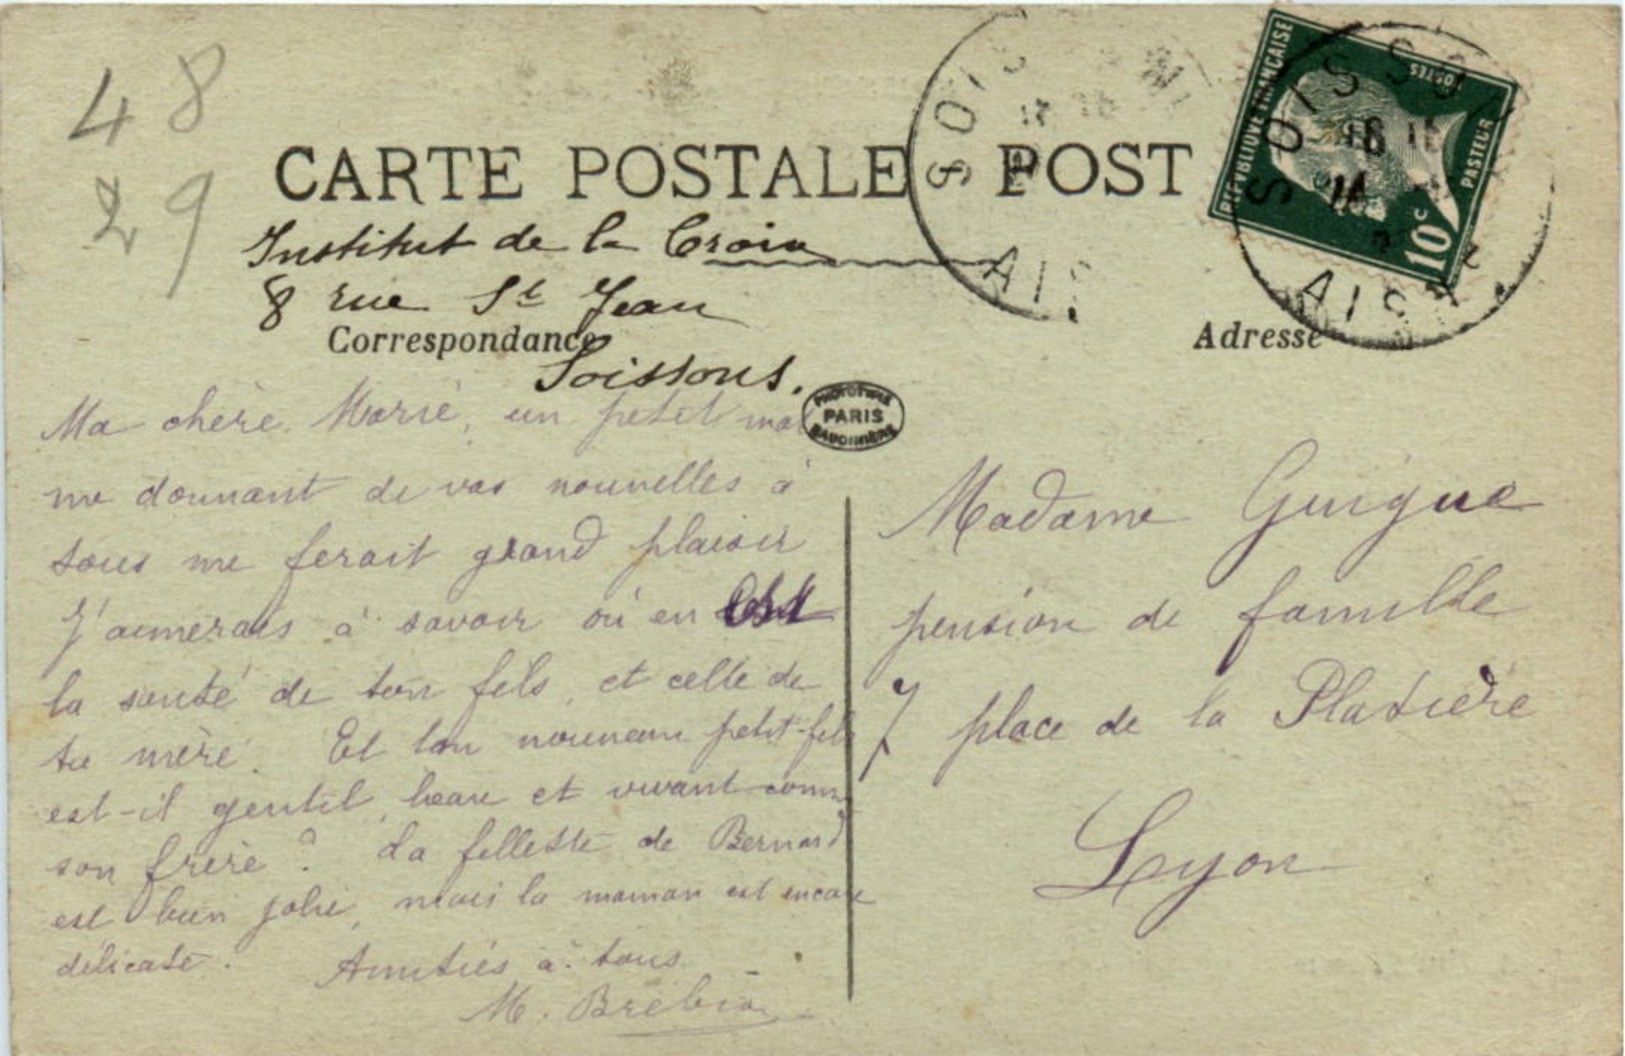 48
29
CARTE POSTALE POST
Institut de la Croix
8 rue St Jean
Correspondance
Soissons.
Adresse
REPUBLIQUE FRANÇAISE
POSTES
PASTEUR
10c
SOISSO
AIS
SOIS
AIS
PHOTOTYPIE
PARIS
BAUDINIÈRE
Ma chère Marie, un petit mot
me donnant de vos nouvelles à
tous me ferait grand plaisir
J'aimerais à savoir où en est
la santé de ton fils, et celle de
ta mère. Et ton nouveau petit-fils
est-il gentil, beau et vivant comme
son frère ? La fillette de Bernard
est bien jolie, mais la maman est encore
délicate. Amitiés à tous
M. Brebion
Madame Guigue
pension de famille
7 place de la Platière
Lyon